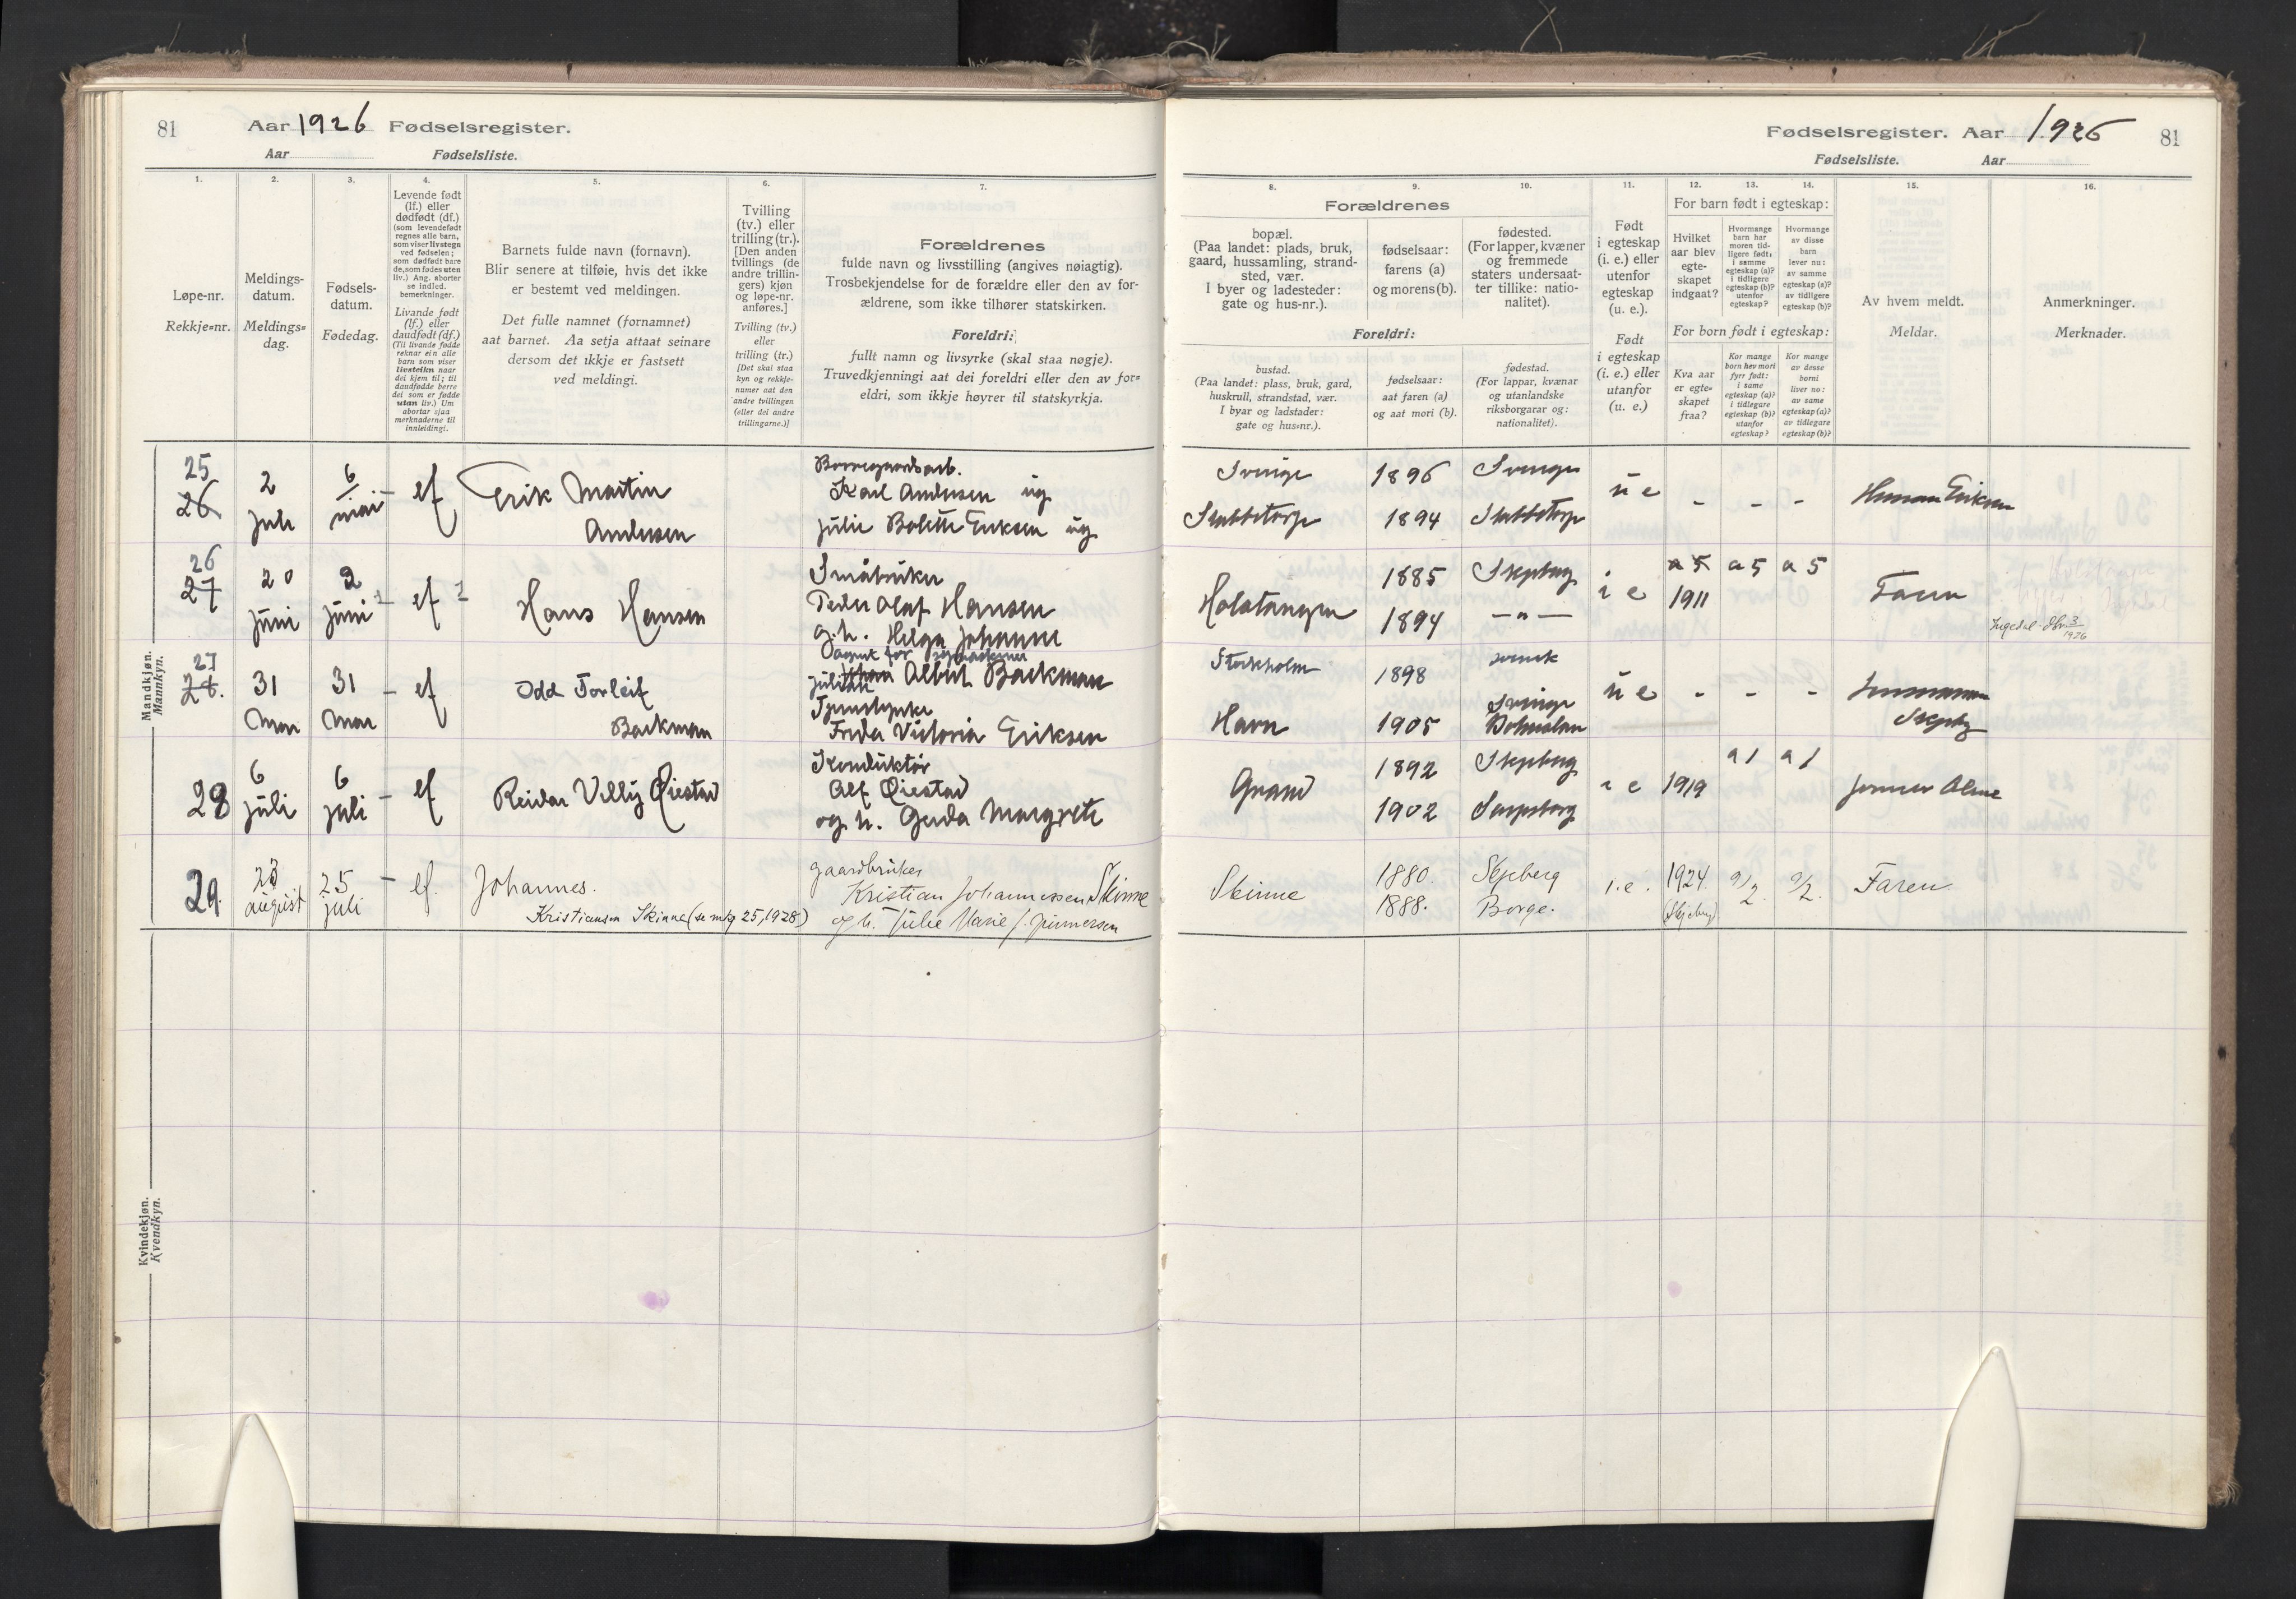 81 Aar 1926 Fødselsregister.
Aar Fødselsliste.
1. 2. 3. 4. 5. 6. 7.
Løpe-nr.
Rekkje=nr.
Meldings-
datum.
Meldings=
dag.
Fødsels-
datum.
Fødedag.
Levende født
(lf.) eller
dødfødt (df.)
(som levendefødt
regnes alle barn,
som viser livstegn
ved fødselen;
som dødfødt bare
de, som fødes uten
liv.) Ang. aborter
se indled.
bemerkninger.
Livande født
(lf.) eller
daudfødt (df.)
(Til livande fødde
reknar ein alle
barn som viser
livsteikn naar
dei kjem til; til
daudfødde berre
dei som er fødde
utan liv.) Um
abortar sjaa
merknaderne til
innleidingi.
Barnets fulde navn (fornavn).
Blir senere at tilføie, hvis det ikke
er bestemt ved meldingen.
Det fulle namnet (fornamnet)
aat barnet. Aa setja attaat seinare
dersom det ikkje er fastsett
ved meldingi.
Tvilling
(tv.) eller
trilling (tr.).
[Den anden
tvillings (de
andre trillin-
gers) kjøn
og løpe-nr.
anføres.]
Tvilling (tv.)
eller
trilling (tr.)
[Det skal staa
kyn og rekkje-
numer aat den
andre tvillingen
(eller dei andre
trillingarne.)]
Forældrenes
fulde navn og livsstilling (angives nøiagtig).
Trosbekjendelse for de forældre eller den av for-
ældrene, som ikke tilhører statskirken.
Foreldri:
fullt namn og livsyrke (skal staa nøgje).
Truvedkjenningi aat dei foreldri eller den av for=
eldri, som ikkje høyrer til statskyrkja.
Mandkjøn.
Mannkyn.
25
26 2 juli 6 mai – lf Erik Martin
Andersen
Borregaardsarb.
Karl Andersen ug
Julie Bolette Eriksen ug
26
27 20 juni 2 juni – lf Hans Hansen
Småbruker
Peder Olaf Hansen
o.h. Helga Johanne
27
28. 31 mai 31 mai – lf Odd Torleif
Backman
agent for symaskiner
Albert Backman
Tjenestepike
Frida Victoria Eriksen
28 6 juli 6 juli – lf Reidar Villy Øiestad
Konduktør
Alf Øiestad
og h. Gerda Margrete
29. 23 august 25 juli – lf. Johannes.
Kristiansen Skinne (se mkg 25, 1928)
gaardbruker
Kristian Johannessen Skinne
og h. Julie Marie f. Gunnersen
Kvindekjøn.
Kvendkyn.
Fødselsregister. Aar 1926 81
Fødselsliste. Aar
8. 9. 10. 11. 12. 13. 14. 15. 16.
Forældrenes
bopæl.
(Paa landet: plads, bruk,
gaard, hussamling, strand-
sted, vær.
I byer og ladesteder:
gate og hus-nr.).
fødselsaar:
farens (a)
og morens (b).
fødested.
(For lapper, kvæner
og fremmede
staters undersaat-
ter tillike: natio-
nalitet).
Foreldri:
bustad.
(Paa landet: plass, bruk, gard,
huskrull, strandstad, vær.
I byar og ladstader:
gate og hus=nr.).
fødselsaar:
aat faren (a)
og aat mori (b).
fødestad.
(For lappar, kvænar
og utanlandske
riksborgarar og:
nationalitet).
Født
i egteskap
(i. e.) eller
utenfor
egteskap
(u. e.).
Født
i egteskap
(i. e.) eller
utanfor
(u. e.)
For barn født i egteskap:
Hvilket
aar blev
egte-
skapet
indgaat?
Hvormange
barn har
moren tid-
ligere født:
i samme
egteskap (a)?
i tidligere
egteskap (b)?
utenfor
egteskap?
Hvormange
av disse
barn
lever nu:
av samme
egteskap (a)?
av tidligere
egteskap (b)?
For born født i egteskap:
Kva aar
er egte=
skapet
fraa?
Kor mange
born hev mori
fyrr født:
i same
egteskap (a)?
i tidlegare
egteskap (b)?
utanfor
egteskap?
Kor mange
av desse
borni
liver no:
av same
egteskap (a)?
av tidlegare
egteskap (b)?
Av hvem meldt.
Meldar.
Anmerkninger.
Merknader.
Sverige 1896 Sverige u e – – – Herman Eriksen
Stubbetorp 1894 Stubbetorp
Holstangen 1885 Skjeberg i e a 5 a 5 a 5 Faren
1894 — " — 1911
Ingedal dbr. 3/1926
Stockholm 1898 svensk u e – – –
Havn 1905 Sverige
Bohuslen
Grand 1892 Skjeberg i e 1919 a 1 a 1
1902 Sarpsborg
Skinne 1880. Skjeberg i. e. 1924 a/2. a/2. Faren
1888. Borge. (Skjeberg)